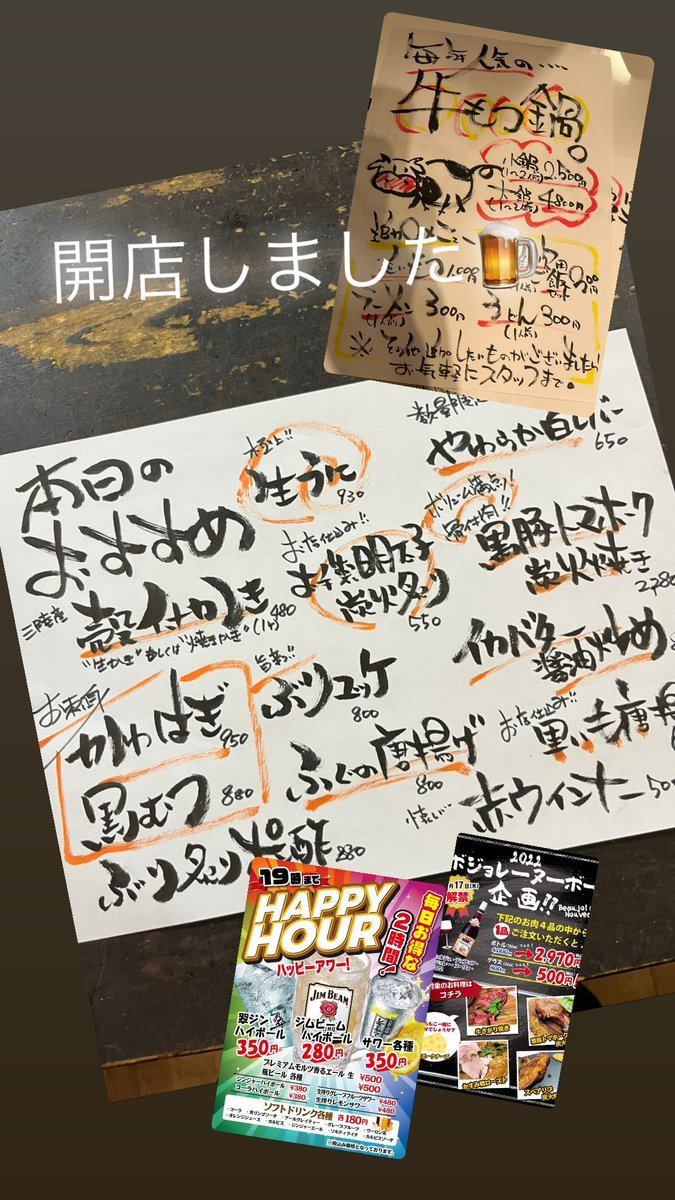 毎年人気の....
牛もつ鍋。
小鍋
(1〜2人前) 2,500円
大鍋
4800円
開店しました🍺
300円
うどん 300円
(1人前)
※その他追加したいものがございましたら
お気軽にスタッフまで。
本日の
おすすめ
極上!!
生うに
930
やわらか白レバー
650
三陸産
殻付かき
480
"生かき"もしくは"焼きかき"(1ヶ)
お店仕込み!!
炭火タタキ
550
ボリューム満点!
骨付肉!!
黒豚トマホーク
炭火焼き
2,780
イカバター
醤油炒め
お刺身
かわはぎ
950
黒むつ
880
旨辛っ!
ぶりユッケ
800
ふぐの唐揚げ
800
お店仕込み!!
懐かしい
赤ウィンナー
ぶりタタキポン酢
880
19時まで
HAPPY
HOUR
ハッピーアワー!
毎日お得な
2時間!
JIM BEAM
翠ジン
ハイボール
350円
ジムビーム
ハイボール
280円
サワー各種
350円
プレミアムモルツ香るエール 生 ¥500
瓶ビール 各種 ¥500
ジンジャーハイボール ¥380
コーラハイボール ¥380
生搾りグレープフルーツサワー ¥480
生搾りレモンサワー ¥480
ソフトドリンク各種 各180円
2022
ボジョレーヌーボー
企画!!
月17日(木)
解禁
下記のお肉4品の中から
1品 ご注文いただくと
ボトル
2,970円
グラス
500円
対象のお料理は
コチラ
牛さがり焼き
スペアリブ